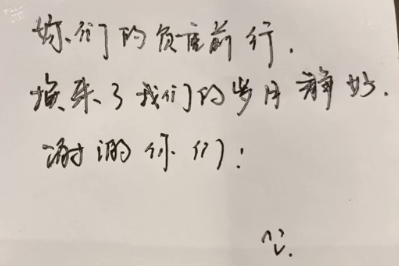 你们的负重前行，
换来了我们的岁月静好。
谢谢你们！